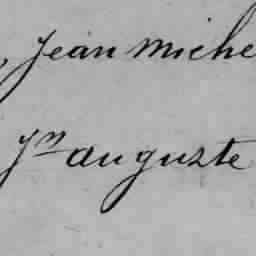 , Jean Miche
Jn auguste